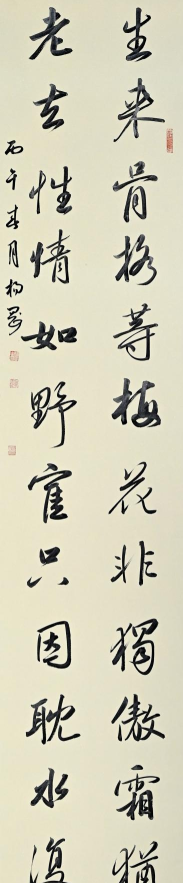 生来骨格等梅花非独傲霜犹
老去性情如野雀只因耽水复
丙午春月杨